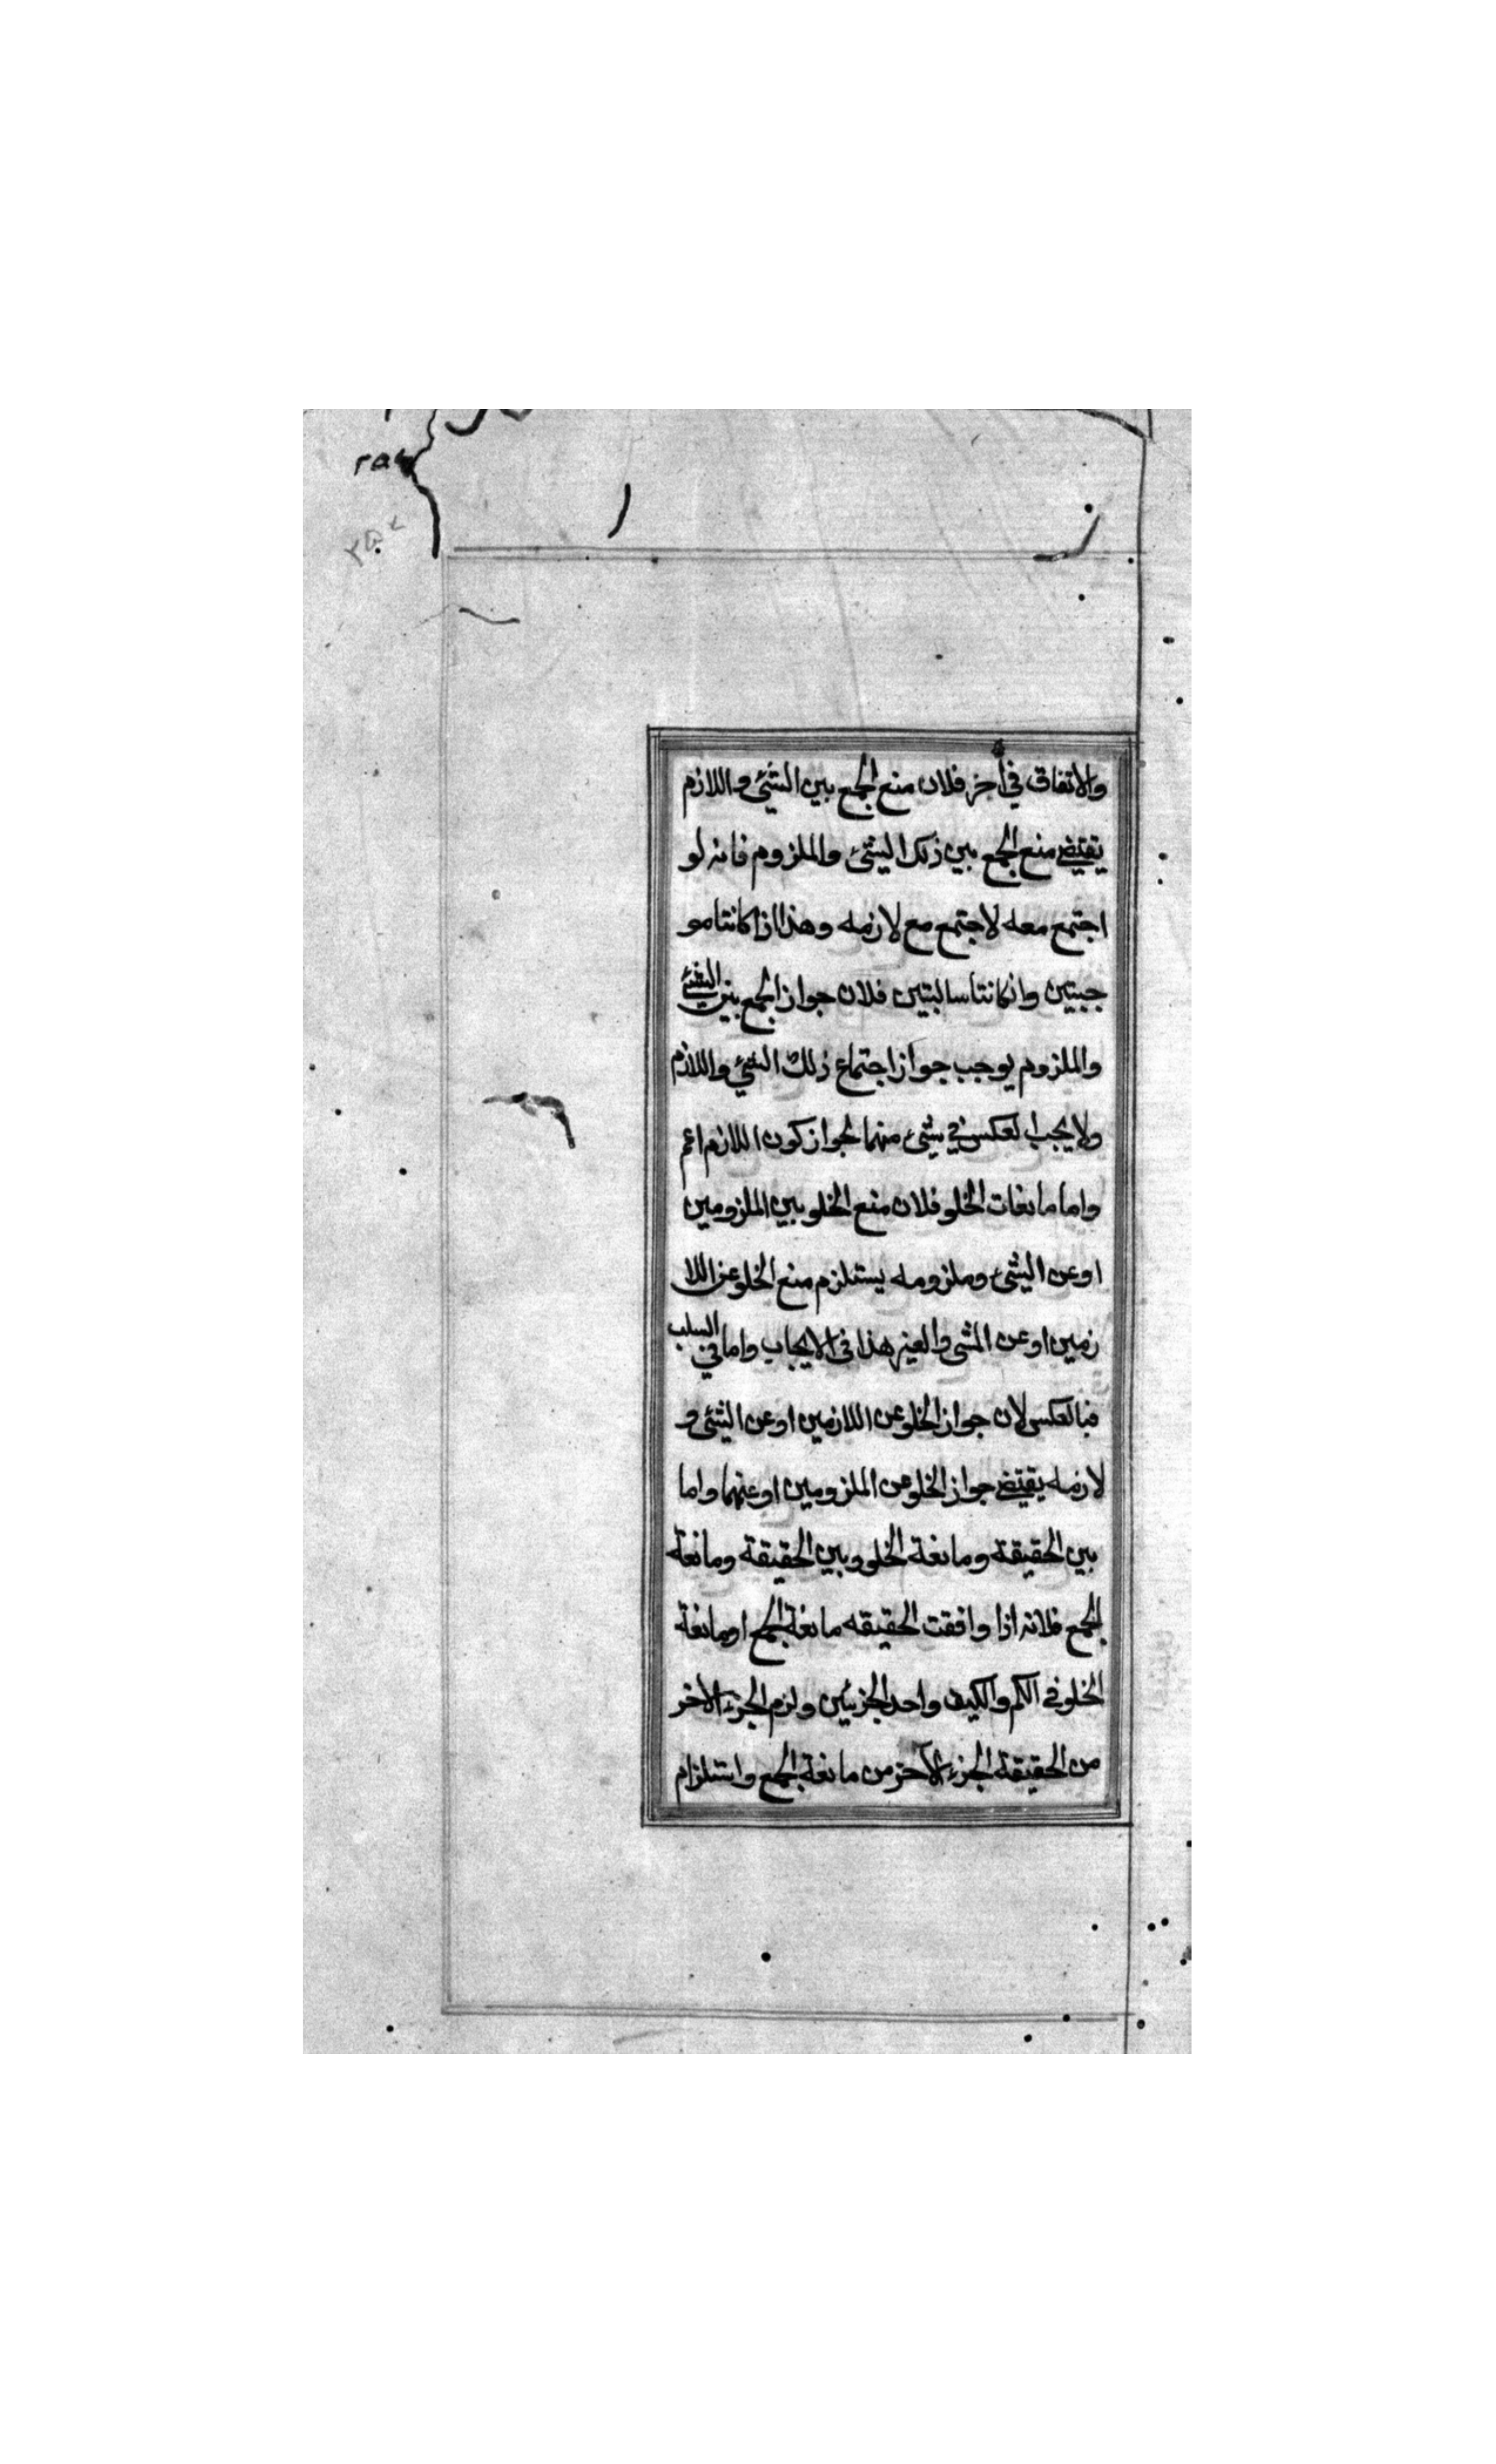 والاتفاق في آخر فلان منع الجمع بين الشئ واللازم
يقتضي منع الجمع بين ذلك الشئ والملزوم فانه لو
اجتمع معه لاجتمع مع لازمه وهذا اذا كانتا مو
جبتين وان كانتا سالبتين فلان جواز الجمع بين الشئ
والملزوم يوجب جواز اجتماع ذلك الشئ واللازم
ولا يجب العكس في شئ منهما لجواز كون اللازم اعم
واما مانعات الخلو فلان منع الخلو بين الملزومين
او عن الشئ وملزومه يستلزم منع الخلو عن اللا
زمين او عن الشى والغير هذا في الايجاب واما في السلب
فبالعكس لان جواز الخلو عن اللازمين او عن الشئ و
لازمه يقتضي جواز الخلو عن الملزومين او عنهما واما
بين الحقيقة ومانعة الخلو وبين الحقيقة ومانعة
الجمع فلانه اذا وافقت الحقيقه مانعة الجمع او مانعة
الخلو في الكم والكيف واحد الجزئين ولزم الجزء الاخر
من الحقيقة الجزء الآخر من مانعة الجمع واستلزام